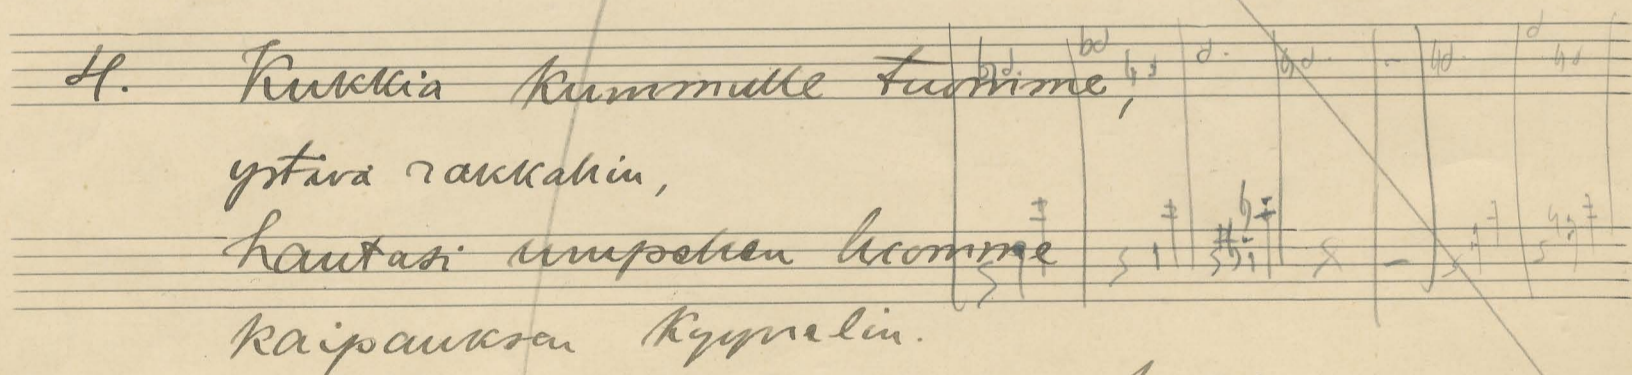 4. Kukkia kummulle tuomme,
ystävä rakkahin,
hautasi umpehen luomme
kaipauksen kyynelin.